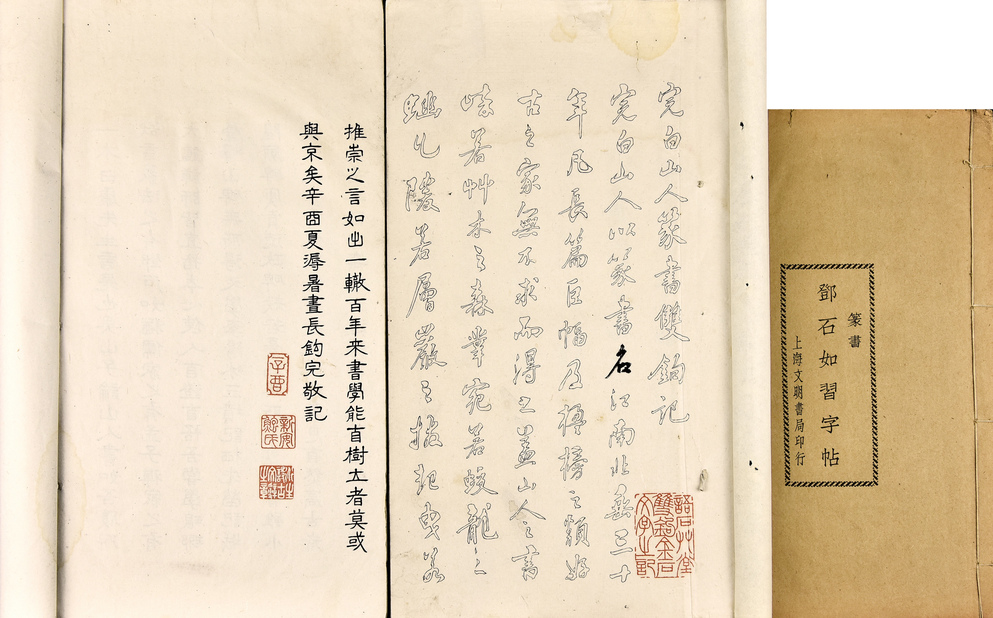 篆書
鄧石如習字帖
上海文明書局印行
完白山人篆書雙鉤記
完白山人以篆書名江南北垂三十
年凡長篇巨幅及楹榜之類好
古之家無不求而得之蓋山人之書
若艸木之森宛若蛟龍之
若層巖之拔起曳若
語石艸堂
雙鉤金石
文字之記
推崇之言如出一轍百年来書學能自樹立者莫或
與京矣辛酉夏溽暑晝長鈎完敬記
辛酉
新安
鮑氏